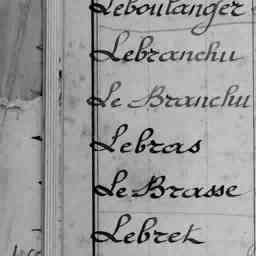 Leboulanger
Lebranchu
Le Branchu
Lebras
Le Brasse
Lebret